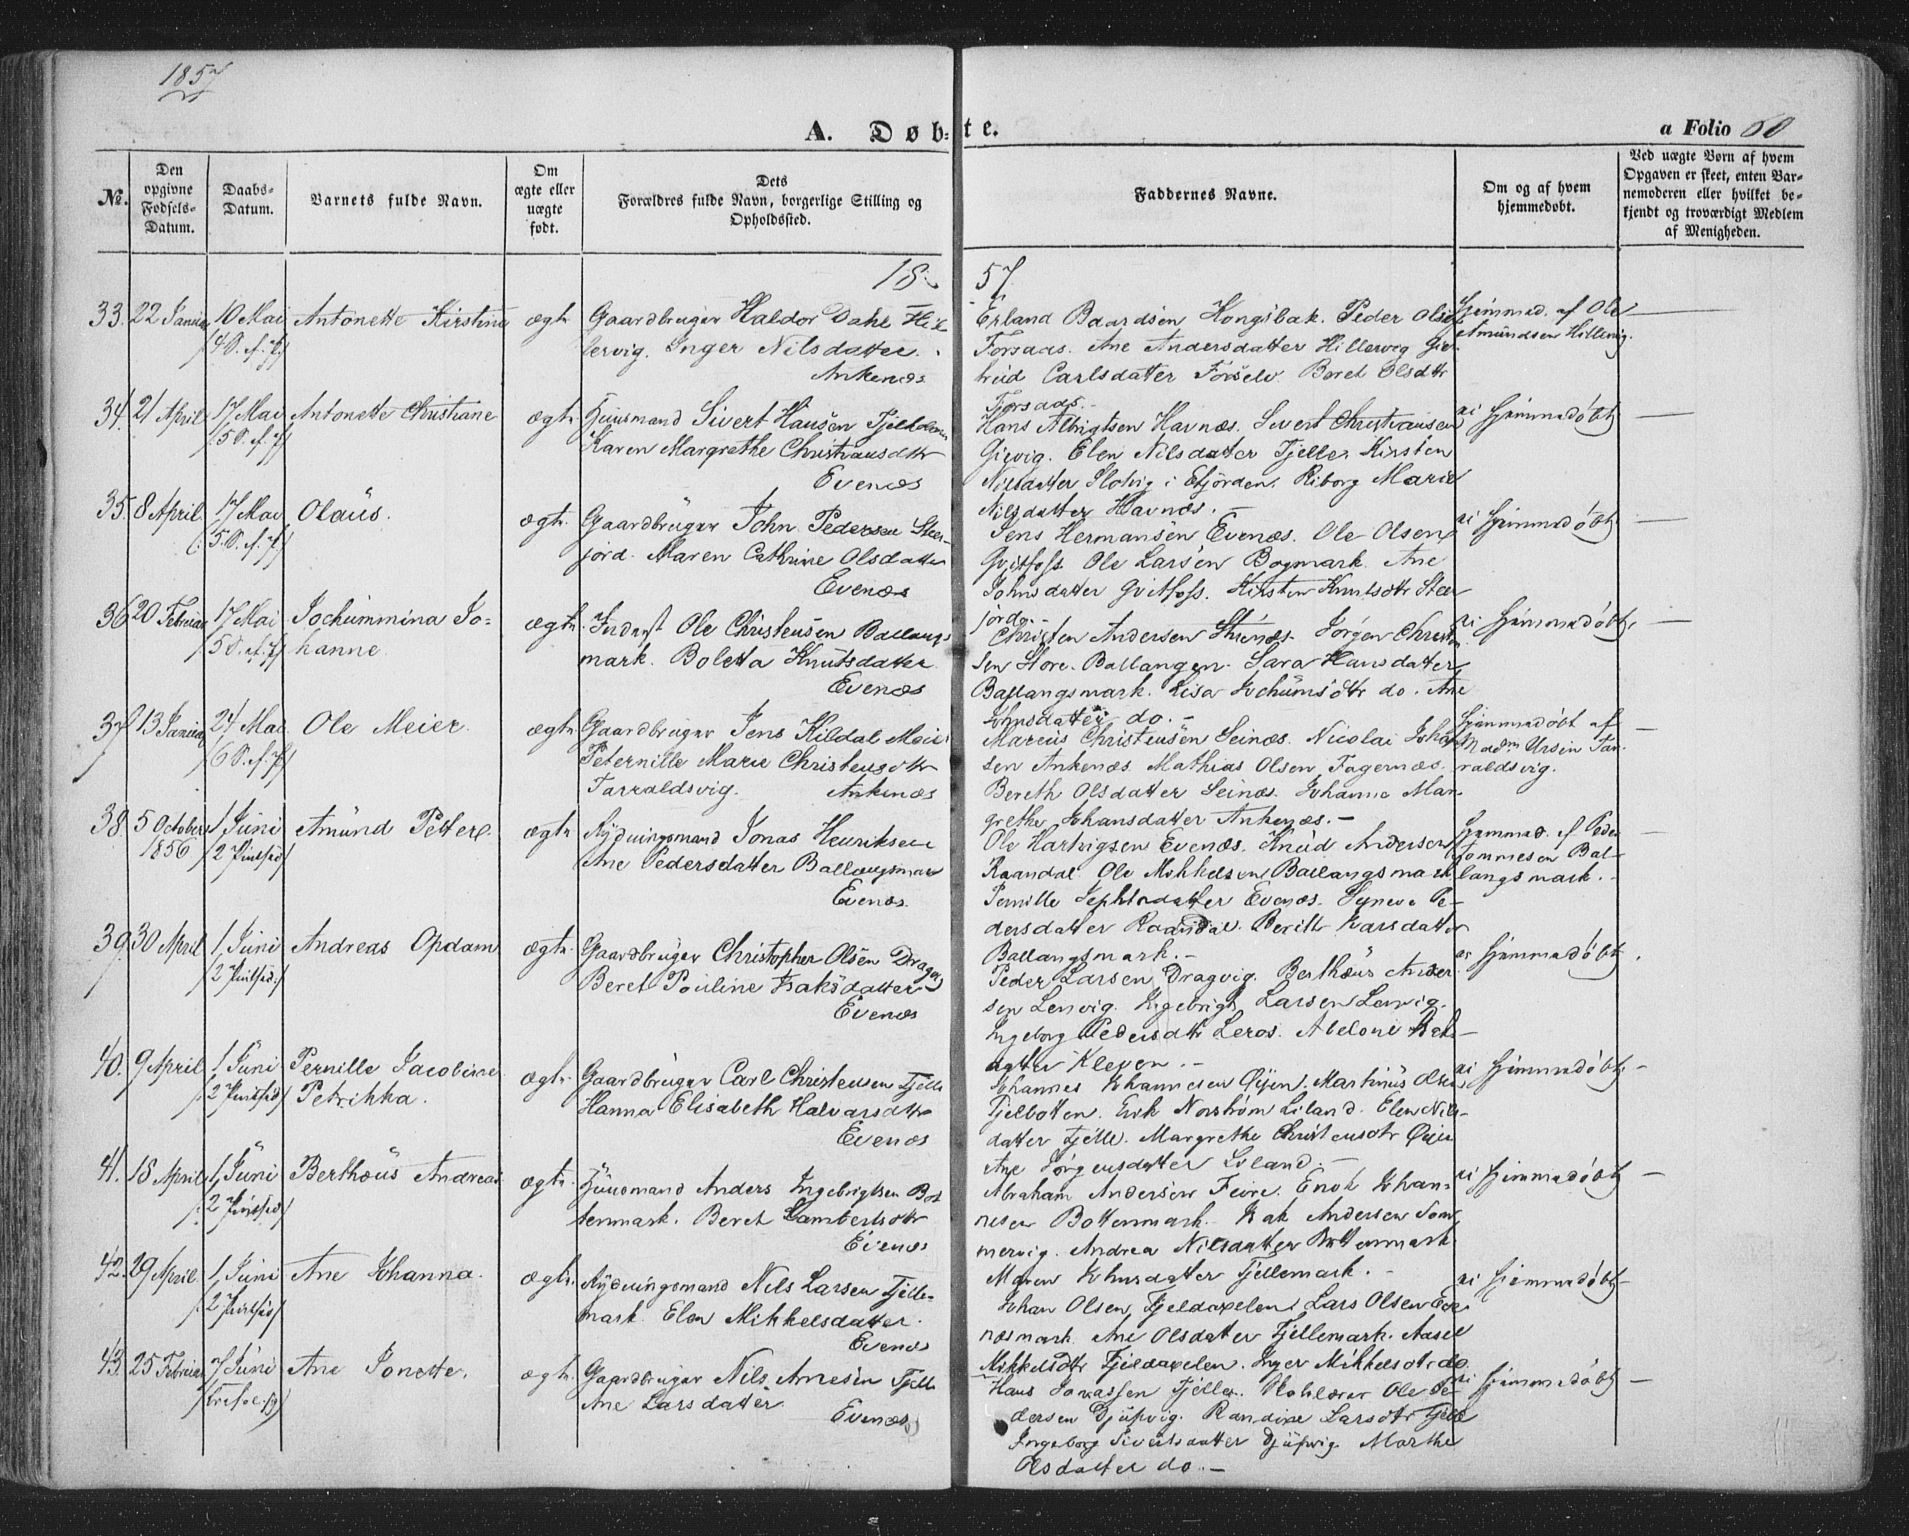 1857
A. Døb-te.
a Folio 60
No.
Den opgivne Fødsels-Datum.
Daabs-Datum.
Barnets fulde Navn.
Om ægte eller uægte født.
Dets Forældres fulde Navn, borgerlige Stilling og Opholdssted.
Faddernes Navne.
Om og af hvem hjemmedøbt.
Ved uægte Børn af hvem Opgaven er skeet, enten Barnemoderen eller hvilket bekjendt og troværdigt Medlem af Menigheden.
1857
33. 22 Januar 10 Mai Antonette Kirstine ægte Gaardbruger Haldor Dahl Hil
4 S. ef. P. lervig. Inger Nilsdatter.
Ankenæs
Erland Baardsen Kongsbak. Peder Olsen
Forsaas. Ane Andersdatter Hillervig
Carlsdatter Forselv. Beret Olsdtr
Forsaas.
Hjemmed. af Ole
Amundsen Hillervig.
34. 21 April 17 Mai Antonette Christiane ægte Huusmand Sivert Hansen
5 S. ef. P. Karen Margrethe Christiansdtr
Evenæs
Hans Albrigtsen Havnæs. Sivert Christiansen
Giervig. Elen Nilsdatter Fjelle. Kirsten
Nilsdatter i Efjorden. Riborg Marie
Nilsdatter Havnæs.
ei Hjemmedøbt
35. 8 April 17 Mai Olaus. ægte Gaardbruger John Pedersen Stor-
5 S. ef. P. jord. Maren Cathrine Olsdatter
Evenæs
Jens Hermansen Evenæs. Ole Olsen
Gvitfoss. Ole Larsen Bogmark. Ane
Johnsdatter Gvitfoss. Kirsten Knutsdtr Stor
jord.
ei Hjemmedøbt
36. 20 Februar 17 Mai Jochummina Jo- ægte Inderst Ole Christensen Ballangs
5 S. ef. P. hanne. mark. Boletta Knutsdatter
Evenæs
Christen Andersen Jørgen Christen
sen Store Ballangen. Sara Hansdatter
Ballangsmark. Lisa Jochumsdtr do. Ane
Johnsdatter do.
ei Hjemmedøbt
37. 13 Januar 24 Mai Ole Meier ægte Gaardbruger Jens Kildal Meier
6 S. ef. P. Peternille Marie Christensdtr
Tarraldsvig. Ankenæs
Marcus Christensen Seinæs. Nicolai Johan
sen Ankenæs. Mathias Olsen Fagernæs.
Bereth Olsdatter Seinæs. Johanna Mar
grethe Johansdatter Ankenæs.
Hjemmedøbt af
Madm Ursin Tar-
raldsvig.
38. 5 October 1 Juni Amund Petter ægte Rydningsmand Jonas Henriksen
1856 2 Pintsed. Ane Pedersdatter Ballangsmark
Evenæs.
Ole Hartvigsen Evenæs. Knud Andersen
Raandal. Ole Mikkelsen Ballangsmark
Pernille Evenæs. Syneve Pe-
dersdatter Raandal. Berith Larsdatter
Ballangsmark.
Hjemmed. af Peder
Bal-
langsmark.
39. 30 April 1 Juni Andreas Opdam ægte Gaardbruger Christopher Olsen
2 Pintsed. Beret Pouline Isaksdatter
Evenæs
Peder Larsen Dragvig. Berthæus Ander
sen Lenvig. Ingebrigt Larsen Lenvig.
Ingeborg Pedersdtr Leros. Abelone Isak-
datter Kleven.
ei Hjemmedøbt.
40. 9 April 1 Juni Pernille Jacobine ægte Gaardbruger Carl Christensen Fjelle
2 Pintsed Petrikka. Hanna Elisabeth Halvarsdtr
Evenæs
Johannes Johannesen Øijen. Martinus Olsen
Fjelbotten. Erik Norstrøm Liland. Elen Nils-
datter Fjelle. Margrethe Christensdtr Øijen
Ane Jørgensdatter Liland.
ei Hjemmedøbt
41. 18 April 1 Juni Berthæus Andreas ægte Huusmand Anders Ingebrigtsen Bot
2 Pintsed tenmark. Beret Lambertsdtr
Evenæs
Abraham Andersen Enok Johan-
nesen Bottenmark. Isak Andersen Som
mervig. Andrea Nilsdatter Bottenmark
Maren Johnsdatter Fjellemark.
ei Hjemmedøbt
42. 29 April 1 Juni Ane Johanna. ægte Rydningsmand Nils Larsen Fjelle-
2 Pintsed mark. Elen Mikkelsdatter.
Evenæs
Johan Olsen, Fjeldaxelen. Lars Olsen Eve
næsmark. Ane Olsdatter Fjellemark. Aasel
Mikkelsdtr Fjeldaxelen. Inger Mikkelsdtr do.
ei Hjemmedøbt
43. 25 Februar 7 Juni Ane Jonette. ægte Gaardbruger Nils Arnesen Fjelle
Ane Larsdatter
Evenæs
Hans Jonassen Fjelle. Skolelærer Ole Pe-
dersen Djupvig. Randine Larsdtr Fjelle
Ingeborg Sivertsdatter Djupvig. Marthe
Olsdatter do.
ei Hjemmedøbt